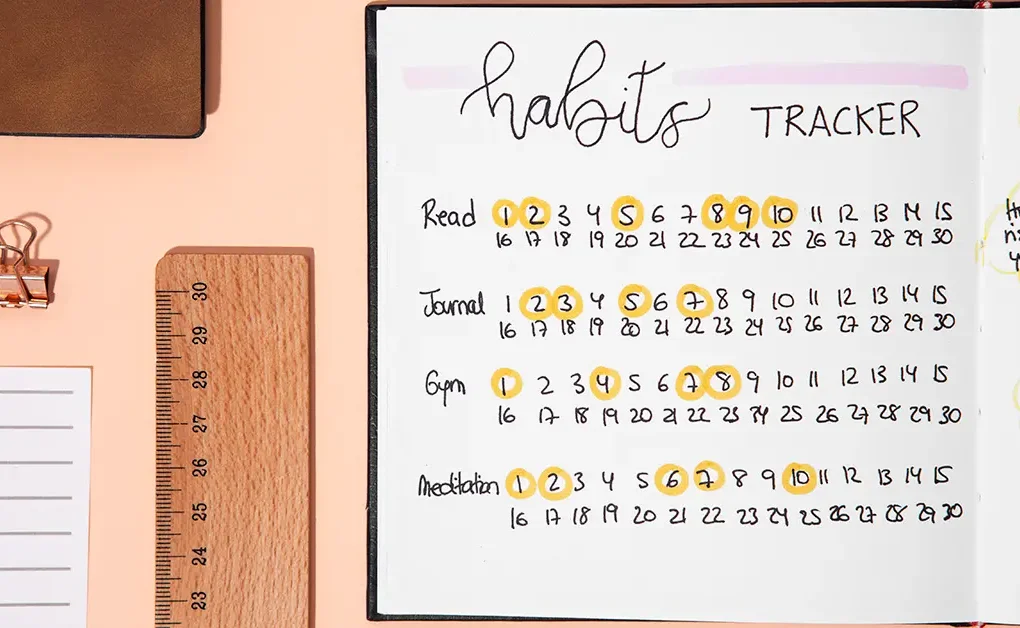 habits TRACKER
Read 1 2 3 4 5 6 7 8 9 10 11 12 13 14 15
16 17 18 19 20 21 22 23 24 25 26 27 28 29 30
Journal 1 2 3 4 5 6 7 8 9 10 11 12 13 14 15
16 17 18 19 20 21 22 23 24 25 26 27 28 29 30
Gym 1 2 3 4 5 6 7 8 9 10 11 12 13 14 15
16 17 18 19 20 21 22 23 24 25 26 27 28 29 30
Meditation 1 2 3 4 5 6 7 8 9 10 11 12 13 14 15
16 17 18 19 20 21 22 23 24 25 26 27 28 29 30
30
29
28
27
26
25
24
23